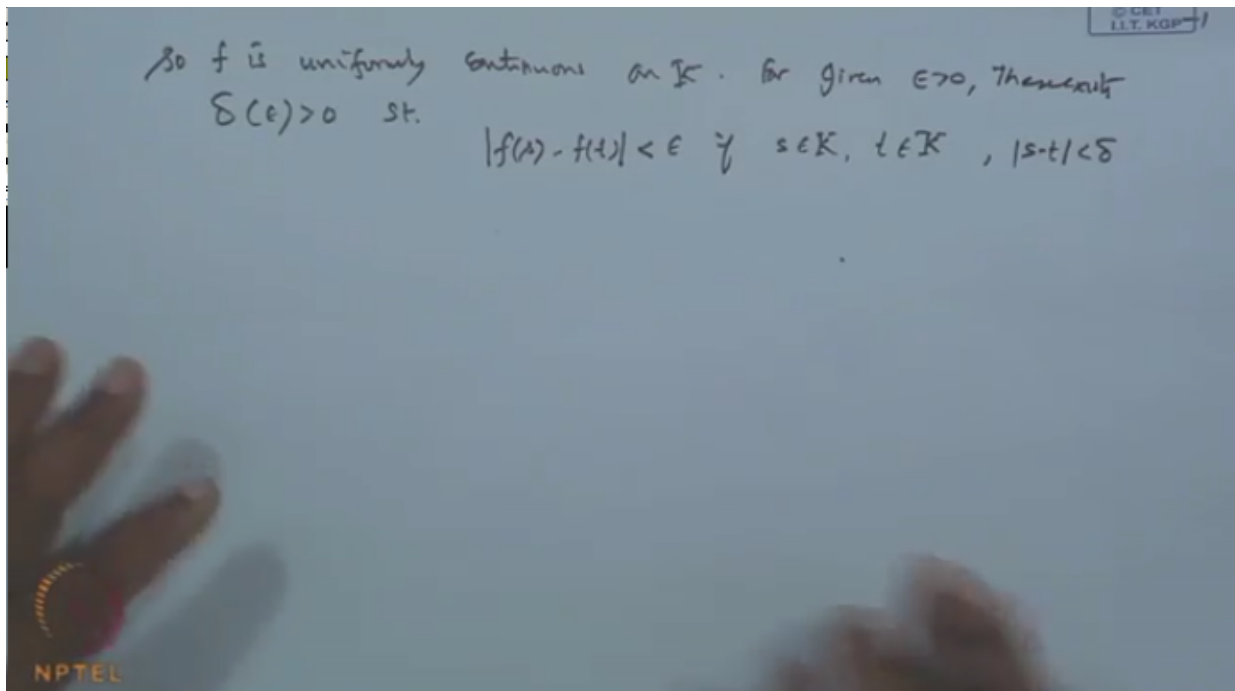 © CET
I.I.T. KGP
So f is uniformly continuous on K. For given ε>0, There exists
δ(ε)>0 st.
|f(s)-f(t)|<ε if s∈K, t∈K, |s-t|<δ
NPTEL